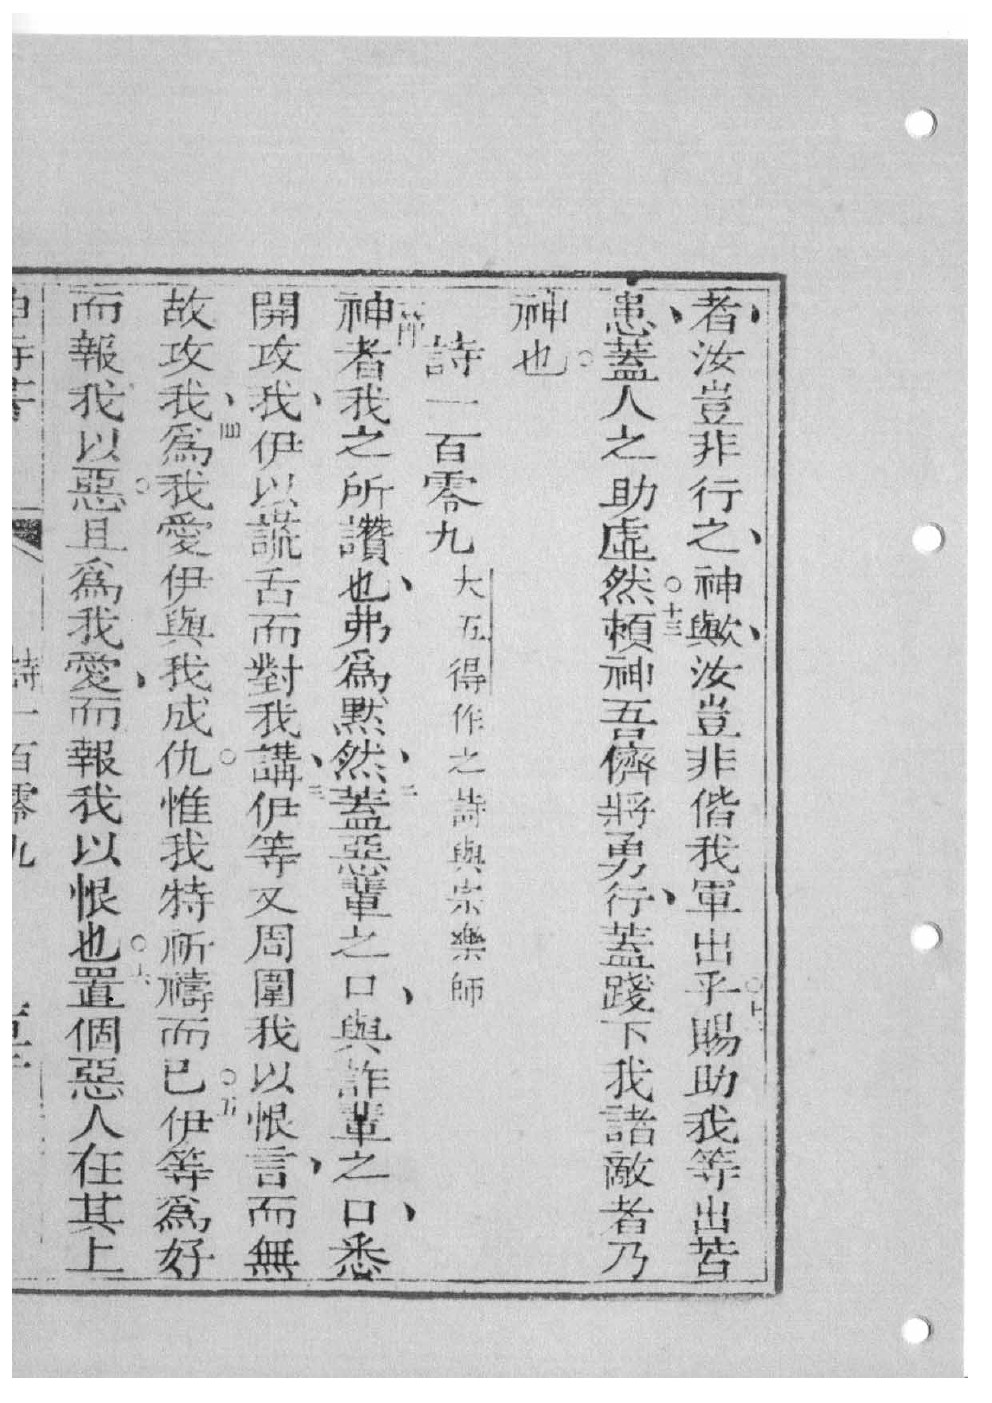 者汝豈非行之神與歟汝豈非偕我軍出乎賜助我等出苦
患蓋人之助虛十三然賴神吾儕將勇行蓋踐下我諸敵者乃
神也
詩一百零九大五得作之詩與宗樂師
一節神者我之所讚也弗為默然二蓋惡輩之口與詐輩之口悉
開攻我伊以謊舌而對我講三伊等又周圍我以恨言而無
故攻我四為我愛伊與我成仇惟我特祈禱而已五伊等為好
而報我以惡且為我愛而報我以恨也六置個惡人在其上
詩一百零九